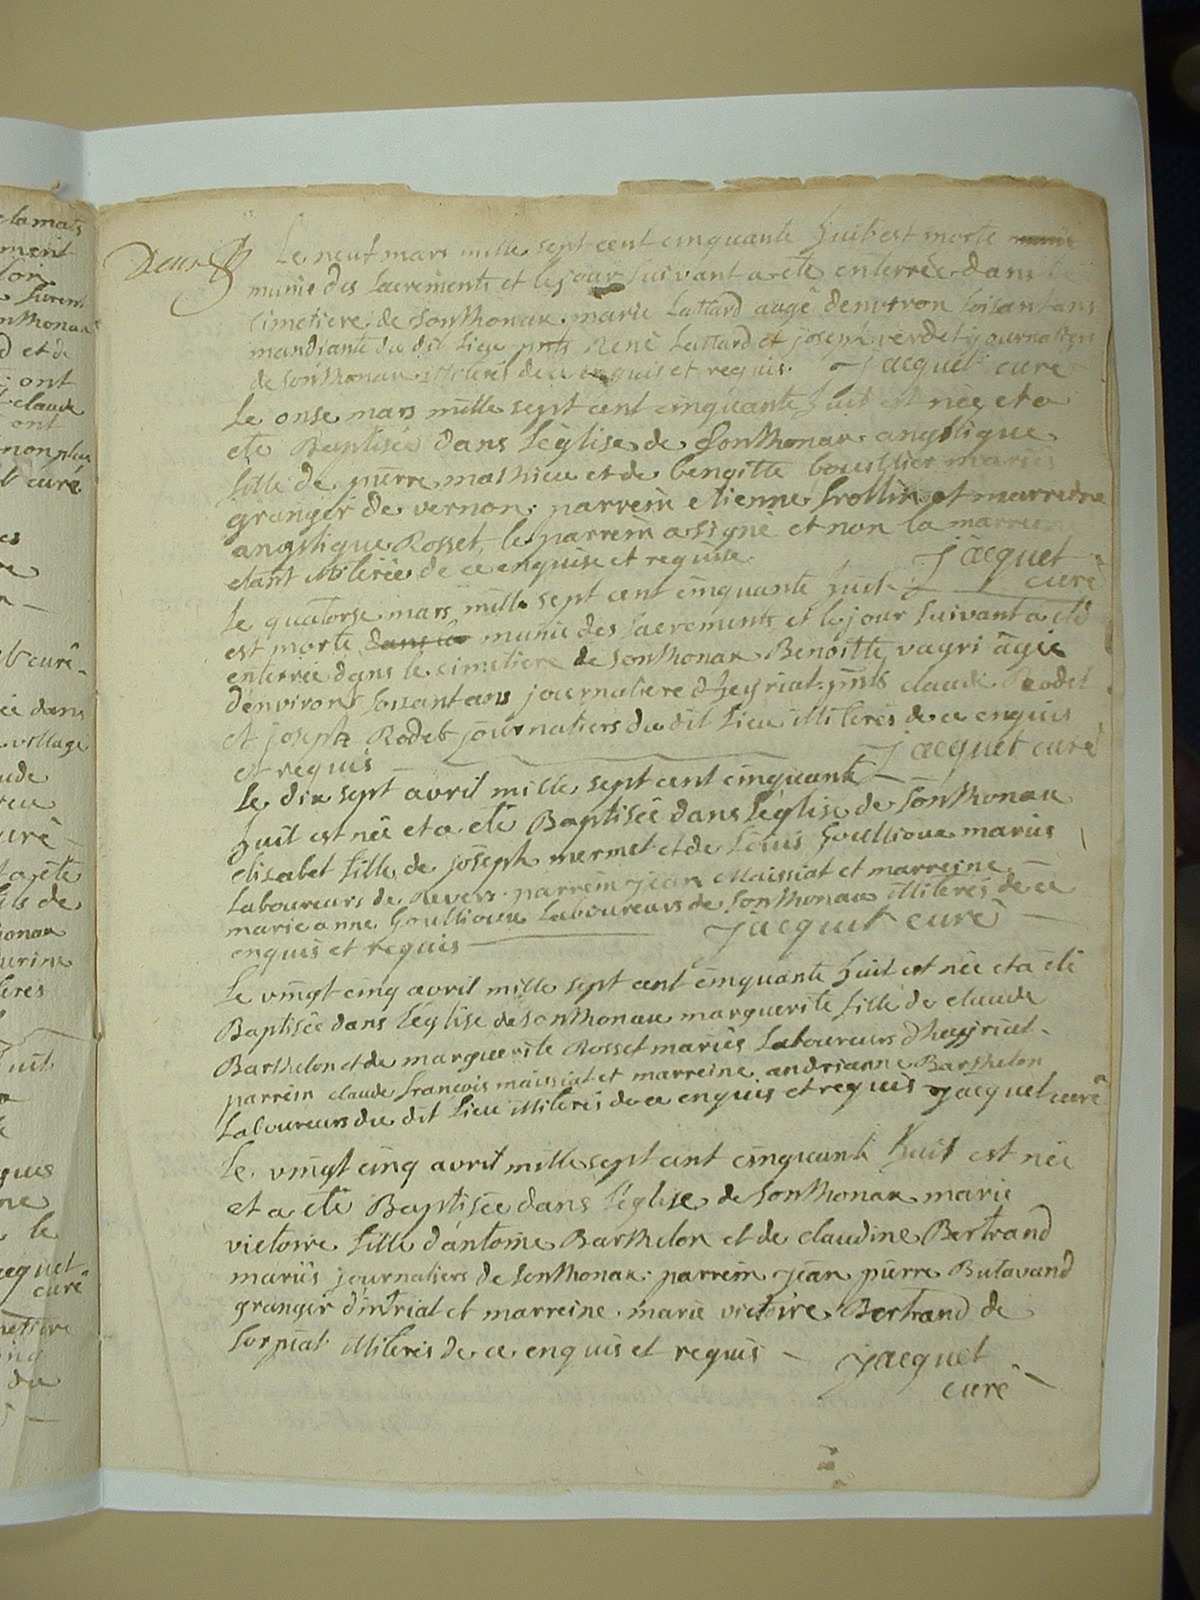 Deux
Le neuf mars mille sept cent cinquante huit est morte
munie des sacrements et le jour suivant a eté enterrée dans le
cimetiere de Sonthonax marie Lattard augé denviron soisant ans
mandiante du dit lieu pnts René Lattard et joseph verdet journaliers
de Sonthonax illiterés de ce enquis et requis. jacquet curé
Le onse mars mille sept cent cinquante huit est née et a
eté Baptisée dans l'église de Sonthonax angelique
fille de pierre mathieu et de bengitte bouillier mariés
granger de vernon. parrein etienne frollin et marreine
angelique Rosset, le parrein a signé et non la marreine
etant illiterée de ce enquise et requise. jacquet
curé
Le quatorse mars mille sept cent cinquante huit
est morte dans le munie des sacrements et le jour suivant a eté
enterrée dans le cimetiere de Sonthonax Benoitte vagri agée
d'environ soisant ans journaliere d'heyriat. pnts claude Rodet
et joseph Rodet journaliers du dit lieu illiterés de ce enquis
et requis jacquet curé
Le dix sept avril mille sept cent cinquante
huit est née et a eté Baptisée dans l'église de Sonthonax
elisabet fille de joseph mermet et de Louis Goullioux mariés
Laboureurs de Revers. parrein jean Maissiat et marreine
marie anne Goullioux Laboureurs de Sonthonax illiterés de ce
enquis et requis jacquet curé
Le vingt cinq avril mille sept cent cinquante huit est née et a eté
Baptisée dans l'église de Sonthonax marguerite fille de claude
Barthelon et de marguerite Rosset mariés Laboureurs d'heyriat.
parrein claude françois maissiat et marreine andrianne Barthelon
Laboureurs du dit lieu illiterés de ce enquis et requis jacquet curé
Le vingt cinq avril mille sept cent cinquante huit est née
et a eté Baptisée dans l'église de Sonthonax marie
victoire fille d'antoine Barthelon et de claudine Bertrand
mariés journaliers de Sonthonax. parrein jean pierre Butavand
granger d'intriat et marreine marie victoire Bertrand de
Sorpiat illiterés de ce enquis et requis jacquet
curé